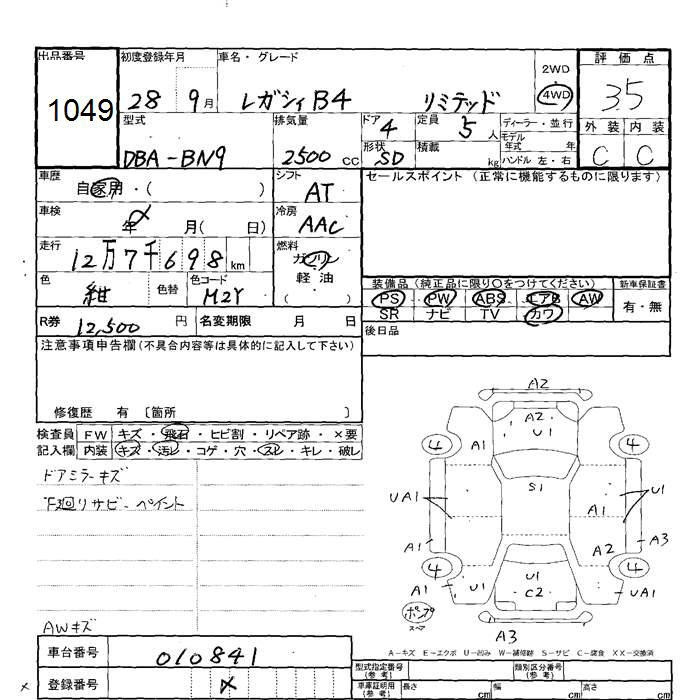 出品番号 初度登録年月 車名・グレード 評価点
1049 28 9月 レガシィB4 リミテッド 2WD 4WD 35
型式 排気量 ドア 4 定員 5人 ディーラー・並行 外装 内装
モデル年式 年
DBA-BN9 2500cc 形状 SD 積載 kg ハンドル 左・右 C C
車歴 自家用・( ) シフト AT セールスポイント (正常に機能するものに限ります)
車検 年 月( 日) 冷房 AAC
走行 12万7千698km 燃料 ガソリン
軽油
( )
色 紺 色替 色コード M2Y 装備品 (純正品に限り○をつけてください) 新車保証書
PS PW ABS エアB AW 有・無
SR ナビ TV カワ
R券 12,500円 名変期限 月 日 後日品
注意事項申告欄(不具合内容等は具体的に記入して下さい)
修復歴 有 〔箇所 〕
検査員 FW キズ・飛石・ヒビ割・リペア跡・×要
記入欄 内装 キズ・汚レ・コゲ・穴・スレ・キレ・破レ
ドアミラーキズ
下廻リサビーペイント
AWキズ
A2
A2
U1
4 A1 4
S1
UA1 U1
A1
A1 A2 A3
4 4
A1 U1 U1 UA1
C2
ポンプ
スペア
A3
A－キズ E－エクボ U－凹み W－補修跡 S－サビ C－腐食 XX－交換済
車台番号 010841
登録番号 ×
×
型式指定番号(参考) 類別区分番号(参考)
車庫証明用(参考) 長さ cm 幅 cm 高さ cm